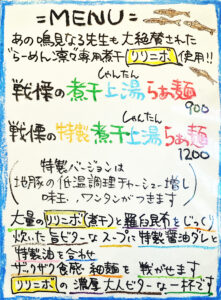 =MENU=
あの鳴見なる先生も大絶賛された
"らーめん凛"専用煮干リリニボ使用!!
しゃんたん
戦慄の煮干上湯らぁ麺
900
しゃんたん
戦慄の特製煮干上湯らぁ麺
1200
特製バージョンは
地豚の低温調理チャーシュー増し
味玉、ワンタンがつきます
大量のリリニボ(煮干)と羅臼昆布をじっくり
炊いた旨ビターなスープに特製醤油ダレと
特製油を合わせ
ザークザク食感 細麺を 戦がせます
リリニボの濃厚大人ビターな一杯です